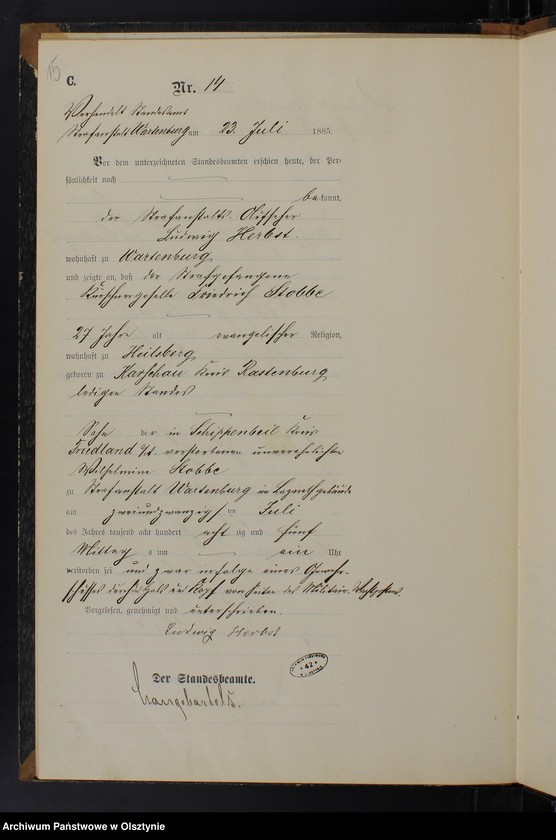 15
C.
Nr. 14
Verhandelt Standesamt
Strafanstalt Wartenburg am 23. Juli 1885.
Vor dem unterzeichneten Standesbeamten erschien heute, der Per-
sönlichkeit nach
be kannt,
der Strafanstalts-Aufseher
Ludwig Herbst.
wohnhaft zu Wartenburg,
und zeigte an, daß der Strafgefangene
Kürschnergeselle Friedrich Stobbe
27 Jahre alt evangelischer Religion,
wohnhaft zu Heilsberg,
geboren zu Karschau Kreis Rastenburg,
ledigen Standes
Sohn der in Schippenbeil Kreis
Friedland verstorbenen unverehelichten
Wilhelmine Stobbe
zu Strafanstalt Wartenburg im Lazarethgebäude
am zweiundzwanzigsten Juli
des Jahres tausend acht hundert acht zig und fünf
Mittag s um ein Uhr
verstorben sei und zwar infolge eines Gewehr-
schusses durch Hals und Kopf von Seiten des Militair-Wachtpostens
Vorgelesen, genehmigt und unterschrieben.
Ludwig Herbst
Der Standesbeamte.
42
Archiwum Państwowe w Olsztynie